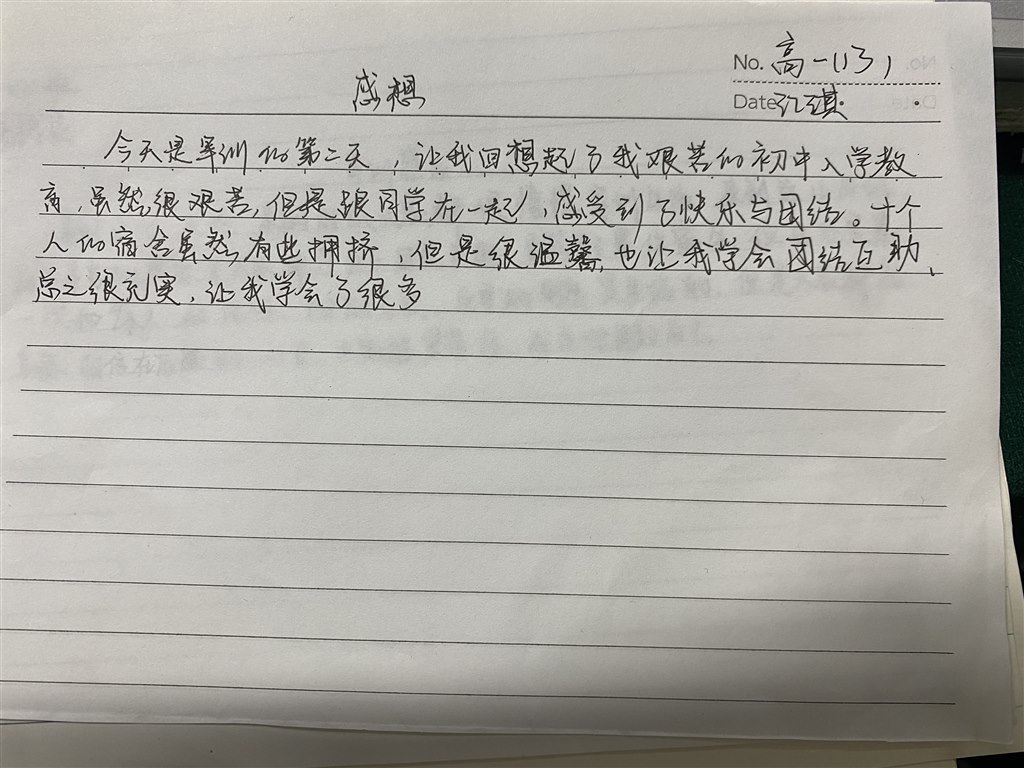 No. 高一(13)
感想
Date 江琪
今天是军训的第二天，让我回想起了我艰苦的初中入学教
育，虽然很艰苦，但是跟同学在一起，感受到了快乐与团结。十个
人的宿舍虽然有些拥挤，但是很温馨，也让我学会团结互助，
总之很充实，让我学会了很多